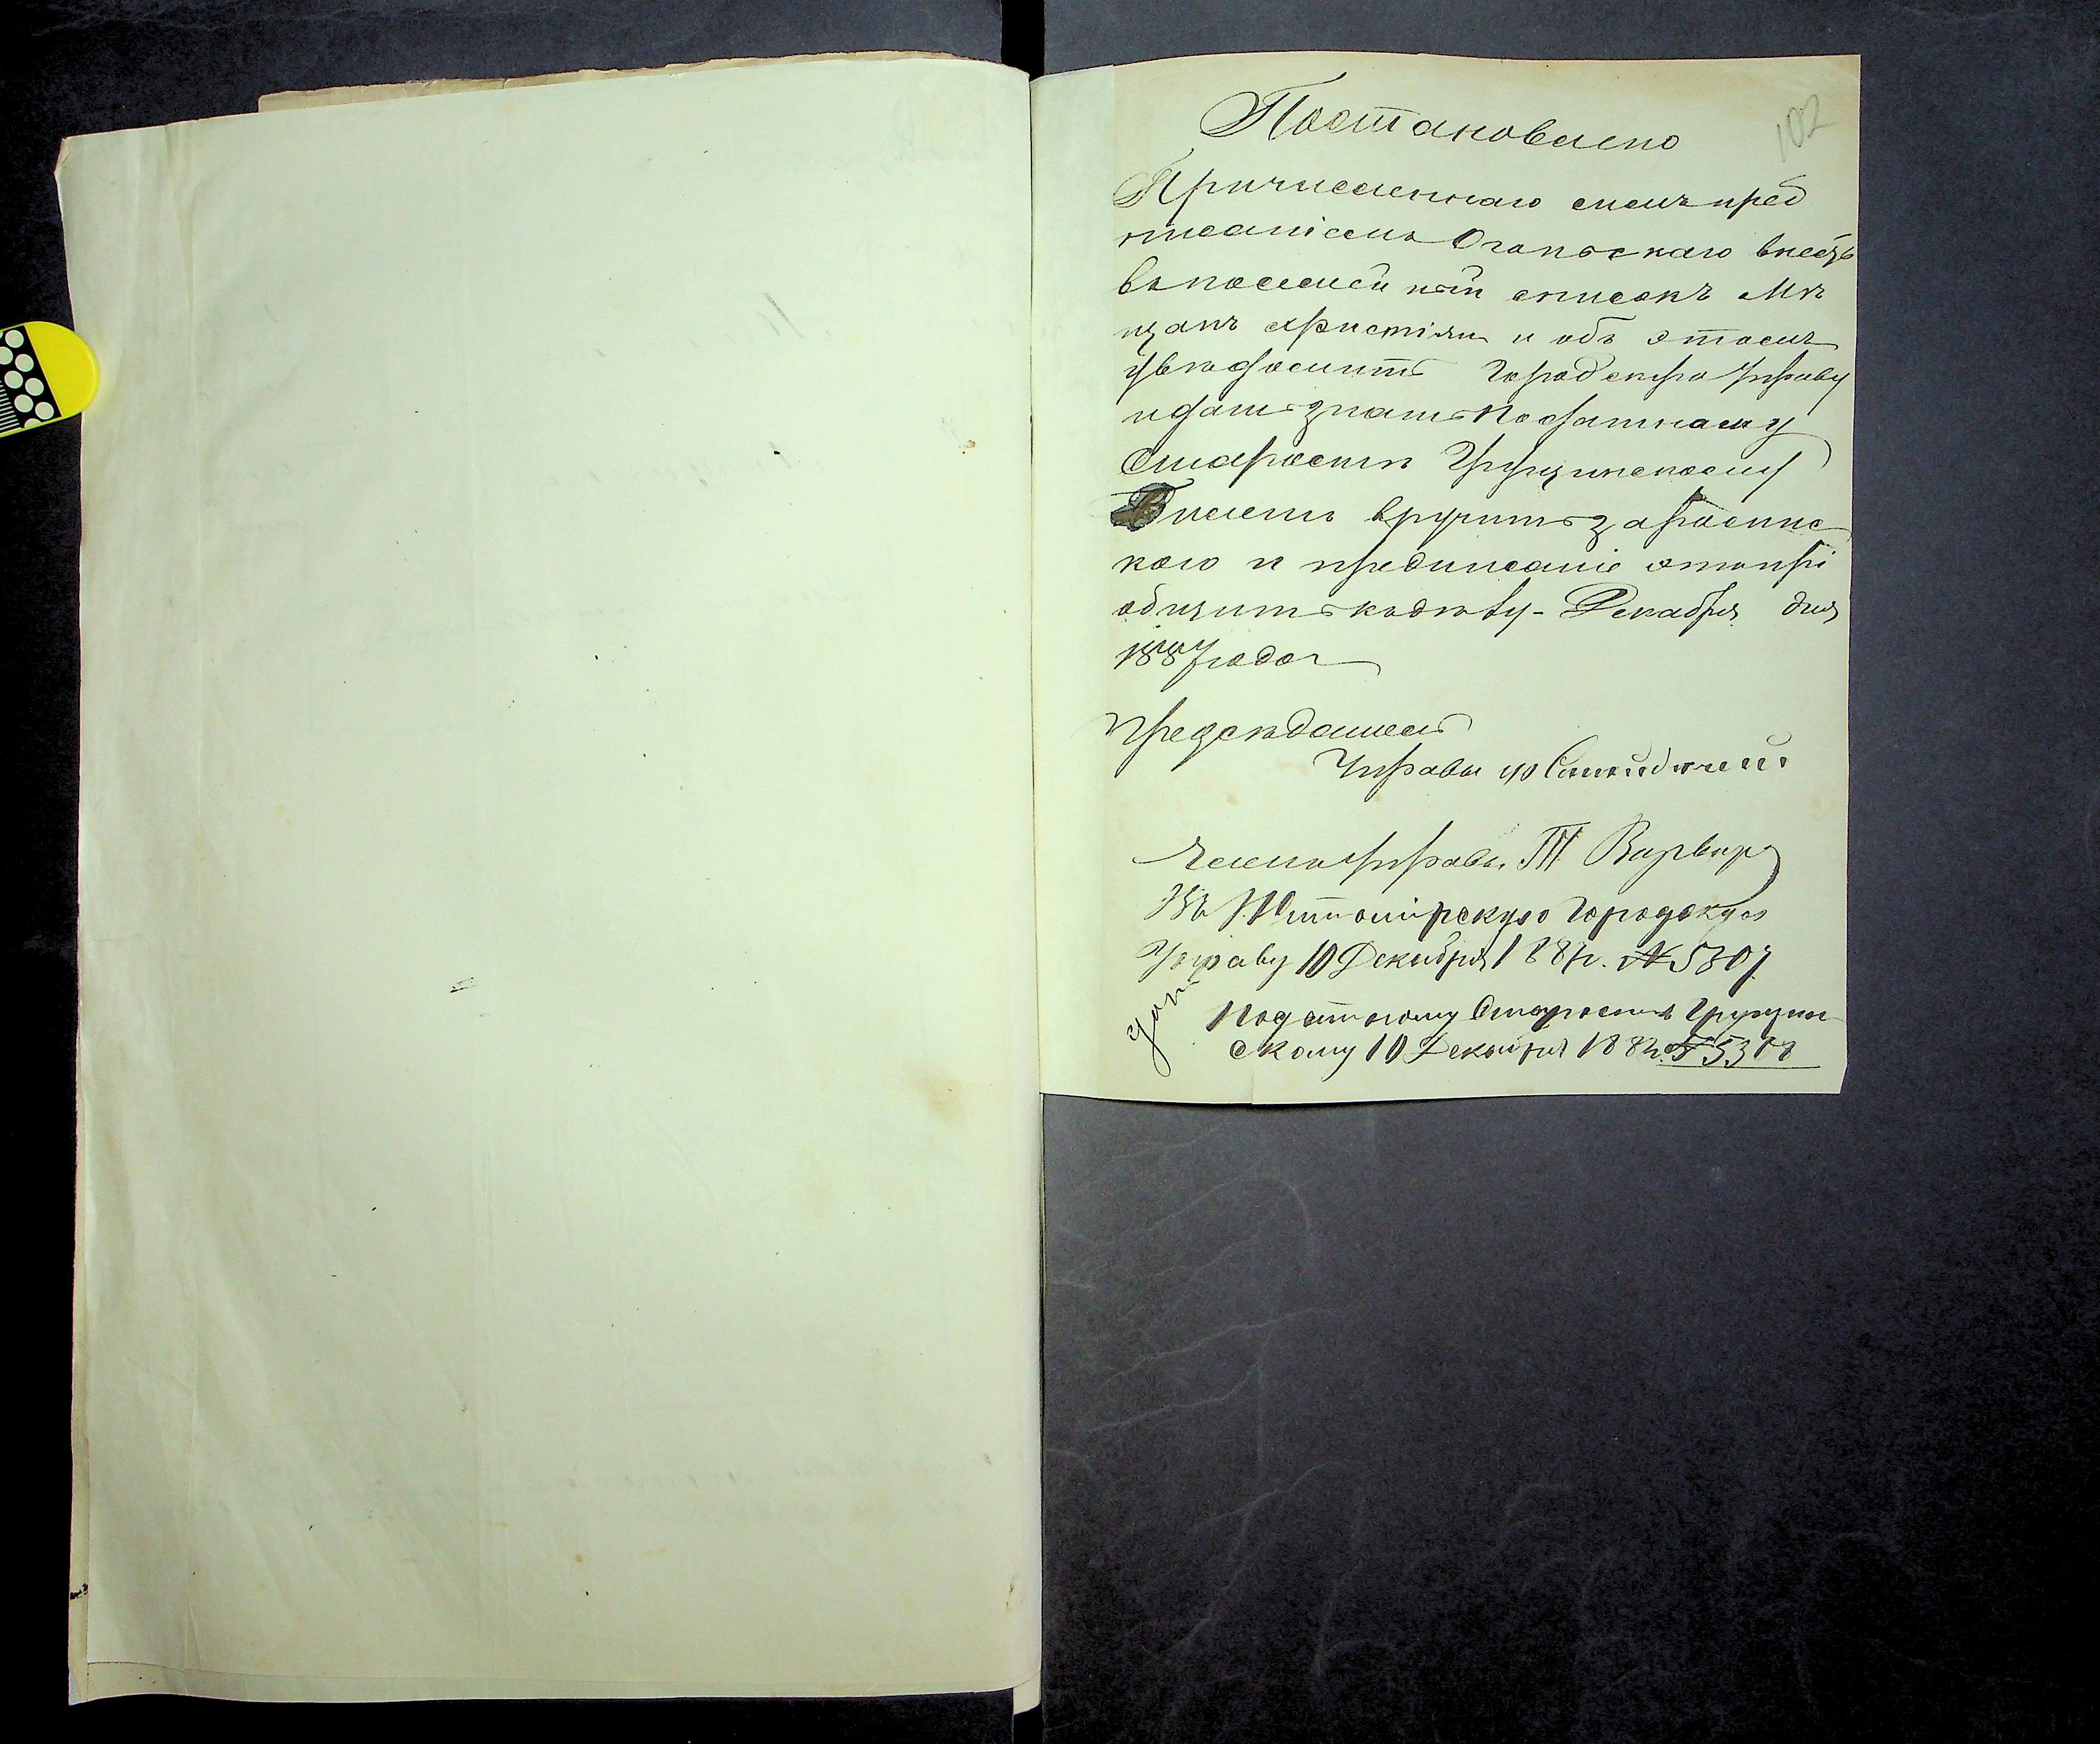 102
Постановлено
Причисленнаго симъ пред
писаніемъ внесть
въ посемейный списокъ Мѣ
щанъ христіянъ и объ этомъ
увѣдомить Городскую Управу
и дать знать Податному
Старостѣ Грузинскому
Билетъ вручить за роспис
кою и предписаніе это прі
общить къ дѣлу - Декабря дня
1887 года
Предсѣдатель
Управы
Членъ Управы
Въ Житомірскую Городскую
Управу 10 Декабря 1887г. № 5307
Податному Старостѣ Грузин
скому 10 Декабря 1887г. № 5308